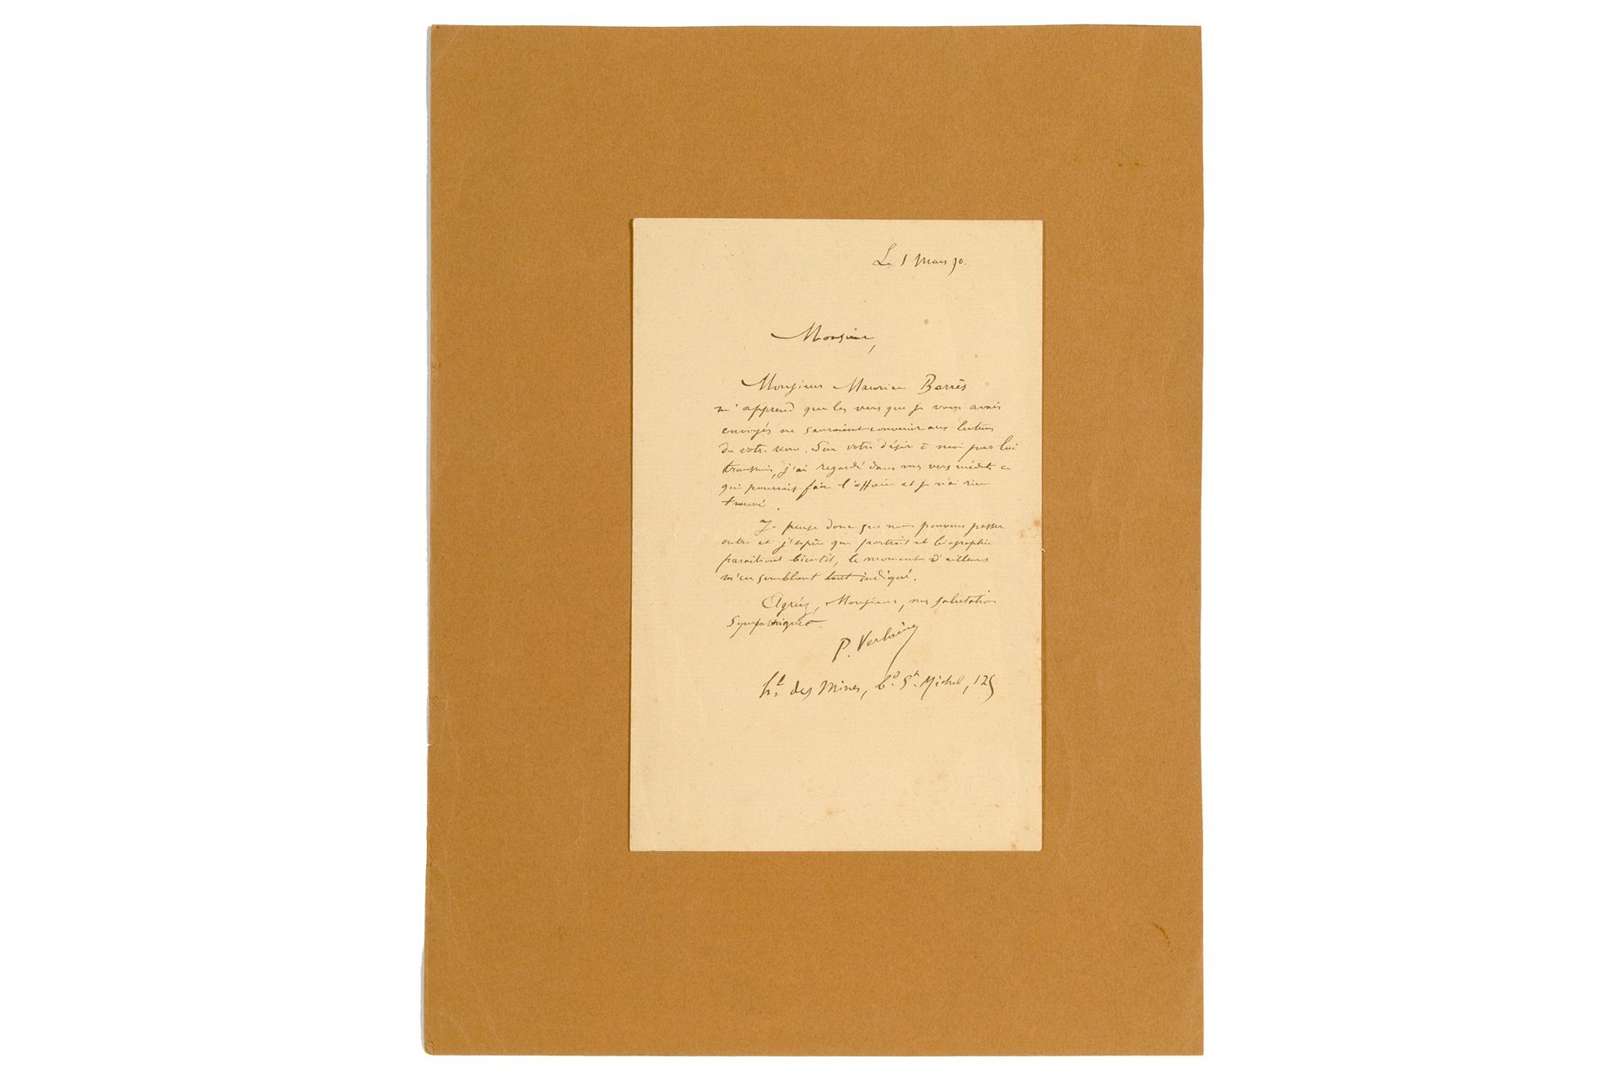 Le 5 Mars 90.
Monsieur,
Monsieur Maurice Barrès
m'apprend que les vers que je vous avais
envoyés ne sauraient convenir aux lecteurs
de votre revue. Sur votre désir à moi par lui
transmis, j'ai regardé dans mes vers inédits ce
qui pourrait faire l'affaire et je n'ai rien
trouvé.
Je pense donc que nous pouvons passer
outre et j'espère que portrait et biographie
paraîtront bientôt, le moment d'ailleurs
m'en semblant tout indiqué.
Agréez, Monsieur, mes salutations
sympathiques.
P. Verlaine
hl. des Mines, bd. St. Michel, 125